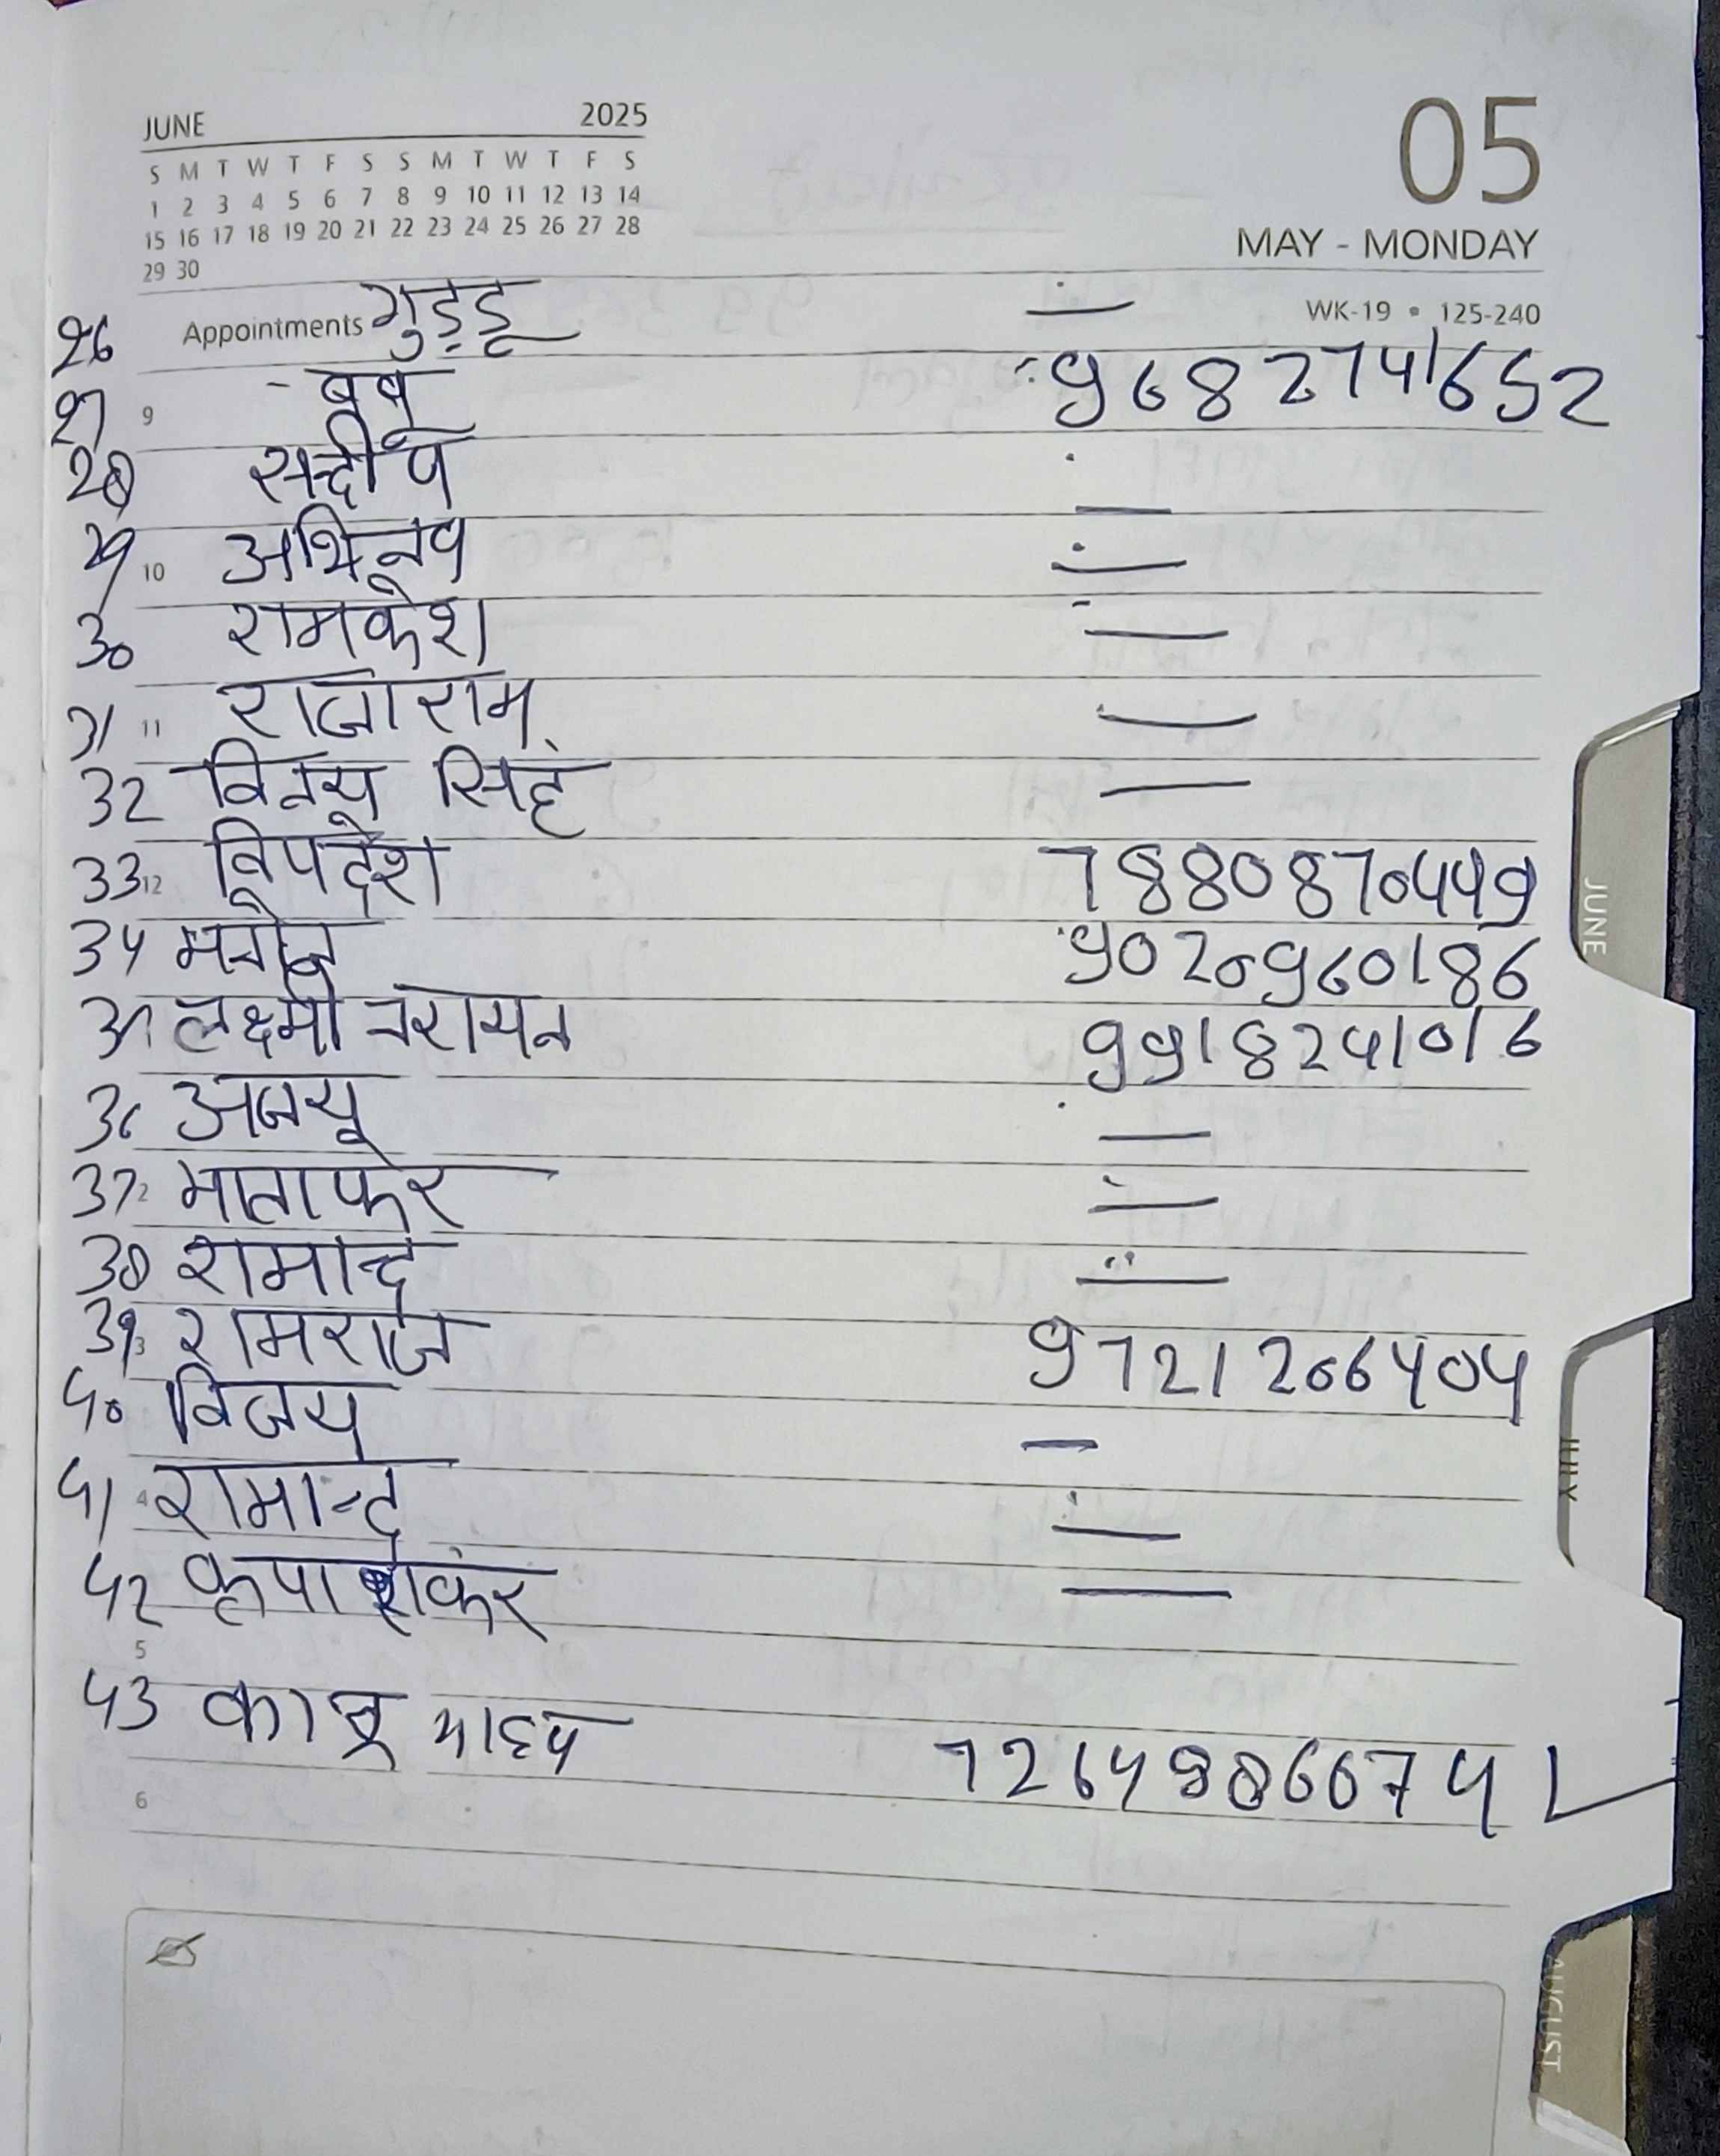 JUNE 2025
S M T W T F S S M T W T F S
1 2 3 4 5 6 7 8 9 10 11 12 13 14
15 16 17 18 19 20 21 22 23 24 25 26 27 28
29 30
05
MAY - MONDAY
WK-19 • 125-240
Appointments
26 गुड़्डू —
27 9 - बबू 9682741652
28 सन्दीप —
29 10 अभिनव —
30 रामकेश —
31 11 राजाराम —
32 विनय सिहं —
33 12 7880870449
34 मनोज 9020960186
35 लक्ष्मी नरायन 9918241016
36 अजय —
37 2 माताफेर —
38 रामान्द —
39 3 रामराज 9721206404
40 विजय —
41 4 रामान्द —
42 कृपा शंकर —
5
43 यादव
6
JUNE
JULY
AUGUST